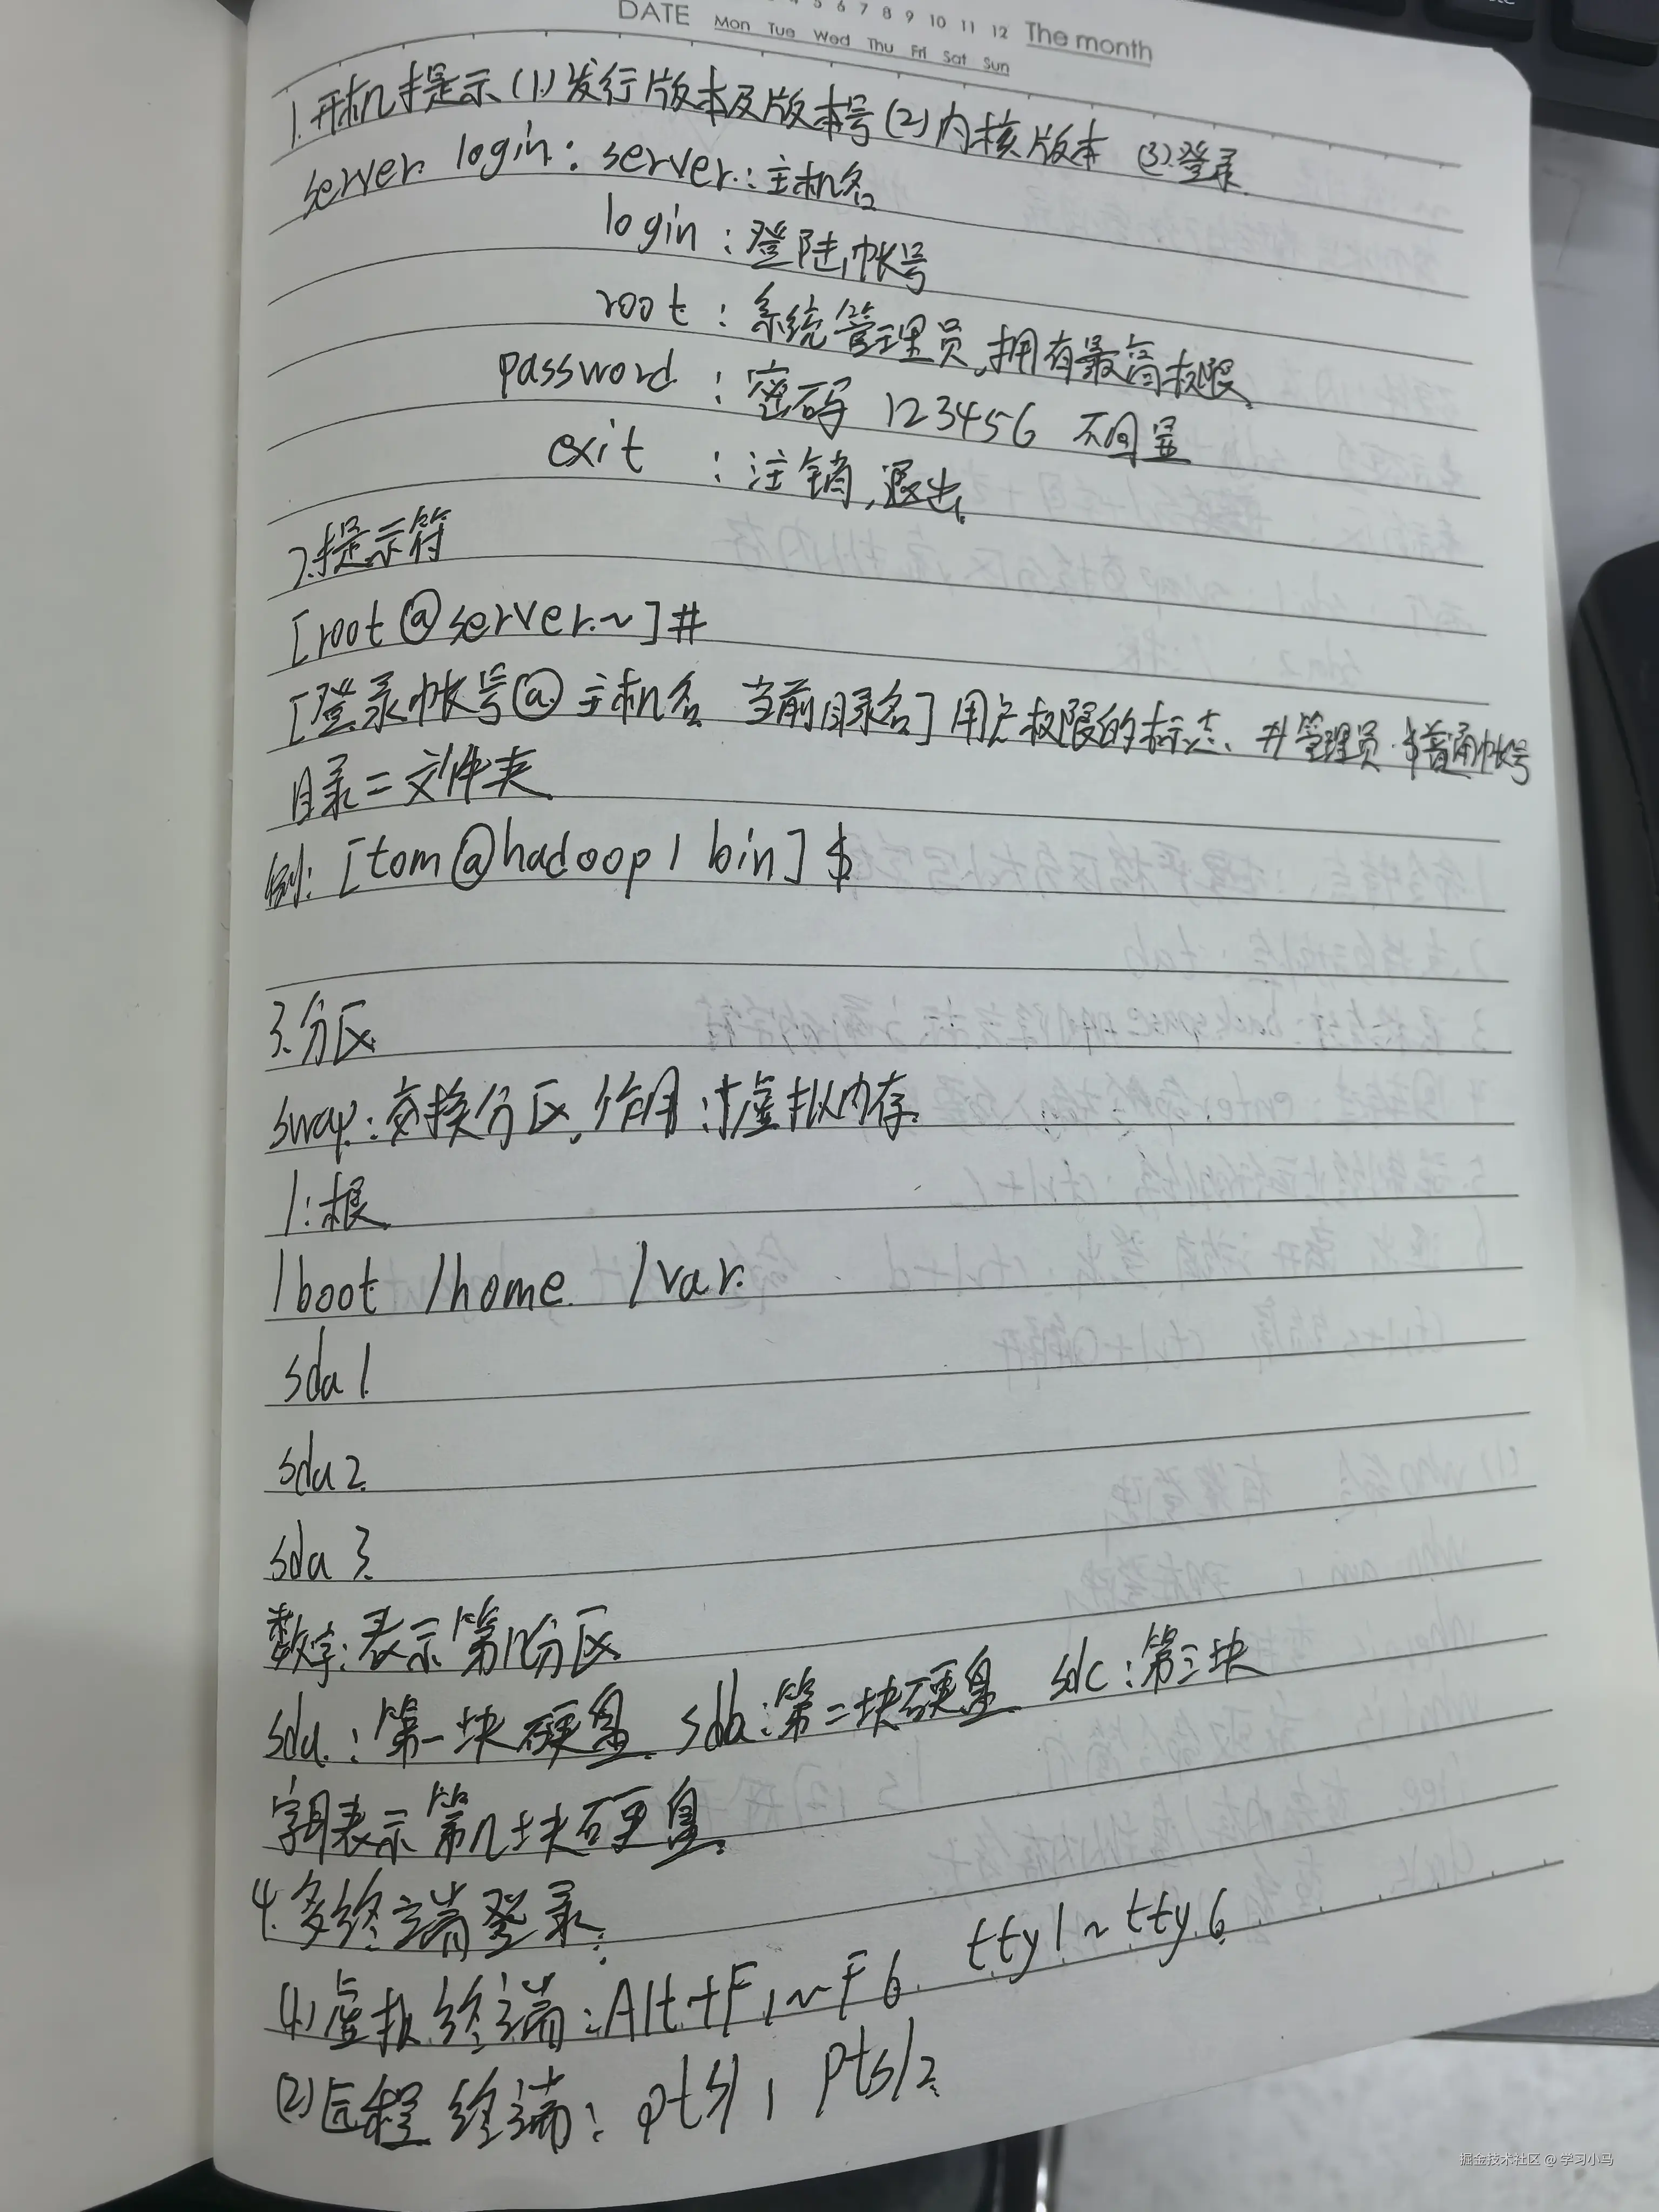 DATE
5 6 7 8 9 10 11 12 The month
Mon Tue Wed Thu Fri Sat Sun
1.开机提示(1)发行版本及版本号(2)内核版本 (3)登录
server login: server:主机名
login:登陆帐号
root:系统管理员,拥有最高权限
password:密码 123456 不回显
exit:注销,退出
2.提示符
[root@server ~]#
[登录帐号@主机名 当前目录名]用户权限的标志、#管理员 $普通帐号
目录=文件夹
例:[tom@hadoop1 bin]$
3.分区
swap:交换分区,作用:虚拟内存
/:根
/boot /home /var
sda1
sda2
sda3
数字:表示第几分区
sda:第一块硬盘 sdb:第二块硬盘 sdc:第三块
字母表示第几块硬盘
4.多终端登录:
(1)虚拟终端:Alt+F1~F6 tty1~tty6
(2)远程终端:pts/1 pts/2
掘金技术社区 @ 学习小马